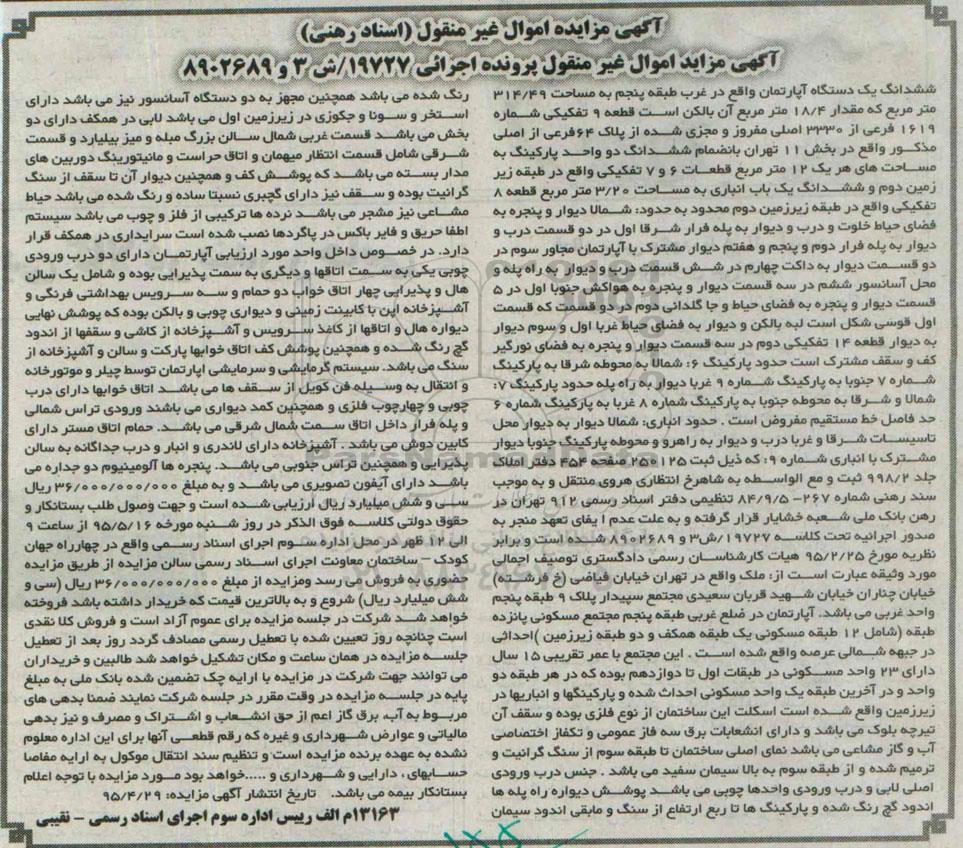 آگهی مزایده اموال غیر منقول (اسناد رهنی)
آگهی مزاید اموال غیر منقول پرونده اجرائی ۱۹۷۲۷/ش ۳ و ۸۹۰۲۶۸۹
ششدانگ یک دستگاه آپارتمان واقع در غرب طبقه پنجم به مساحت ۳۱۴/۴۹
متر مربع که مقدار ۱۸/۴ متر مربع آن بالکن است قطعه ۹ تفکیکی شماره
۱۶۱۹ فرعی از ۳۳۳۰ اصلی مفروز و مجزی شده از پلاک ۶۴فرعی از اصلی
مذکور واقع در بخش ۱۱ تهران بانضمام ششدانگ دو واحد پارکینگ به
مساحت های هر یک ۱۲ متر مربع قطعات ۶ و ۷ تفکیکی واقع در طبقه زیر
زمین دوم و ششدانگ یک باب انباری به مساحت ۳/۲۰ متر مربع قطعه ۸
تفکیکی واقع در طبقه زیرزمین دوم محدود به حدود: شمالا دیوار و پنجره به
فضای حیاط خلوت و درب و دیوار به پله فرار شرقا اول در دو قسمت درب و
دیوار به پله فرار دوم و پنجم و هفتم دیوار مشترک با آپارتمان مجاور سوم در
دو قسمت دیوار به داکت چهارم در شش قسمت درب و دیوار به راه پله و
محل آسانسور ششم در سه قسمت دیوار و پنجره به هواکش جنوبا اول در ۵
قسمت دیوار و پنجره به فضای حیاط و جا گلدانی دوم در دو قسمت که قسمت
اول قوسی شکل است لبه بالکن و دیوار به فضای حیاط غربا اول و سوم دیوار
به دیوار قطعه ۱۴ تفکیکی دوم در سه قسمت دیوار و پنجره به فضای نورگیر
کف و سقف مشترک است حدود پارکینگ ۶: شمالا به محوطه شرقا به پارکینگ
شماره ۷ جنوبا به پارکینگ شماره ۹ غربا دیوار به راه پله حدود پارکینگ ۷:
شمالا و شرقا به محوطه جنوبا به پارکینگ شماره ۸ غربا به پارکینگ شماره ۶
حد فاصل خط مستقیم مفروض است . حدود انباری: شمالا دیوار به دیوار محل
تاسیسات شرقا و غربا درب و دیوار به راهرو و محوطه پارکینگ جنوبا دیوار
مشترک با انباری شماره ۹: که ذیل ثبت ۲۵۰۱۲۵ صفحه ۴۵۴ دفتر املاک
جلد ۹۹۸/۲ ثبت و مع الواسطه به شاهرخ انتظاری هروی منتقل و به موجب
سند رهنی شماره ۲۶۷- ۸۴/۹/۵ تنظیمی دفتر اسناد رسمی ۹۱۲ تهران در
رهن بانک ملی شعبه خشایار قرار گرفته و به علت عدم ا یفای تعهد منجر به
صدور اجرائیه تحت کلاسه ۱۹۷۲۷/ش۳ و ۸۹۰۲۶۸۹ شده است و برابر
نظریه مورخ ۹۵/۲/۲۵ هیات کارشناسان رسمی دادگستری توصیف اجمالی
مورد وثیقه عبارت است از: ملک واقع در تهران خیابان فیاضی (خ فرشته)
خیابان چناران خیابان شهید قربان سعیدی مجتمع سپیدار پلاک ۹ طبقه پنجم
واحد غربی می باشد. آپارتمان در ضلع غربی طبقه پنجم مجتمع مسکونی پانزده
طبقه (شامل ۱۲ طبقه مسکونی یک طبقه همکف و دو طبقه زیرزمین )احداثی
در جبهه شمالی عرصه واقع شده است . این مجتمع با عمر تقریبی ۱۵ سال
دارای ۲۳ واحد مسکونی در طبقات اول تا دوازدهم بوده که در هر طبقه دو
واحد و در آخرین طبقه یک واحد مسکونی احداث شده و پارکینگها و انباریها در
زیرزمین واقع شده است اسکلت این ساختمان از نوع فلزی بوده و سقف آن
تیرچه بلوک می باشد و دارای انشعابات برق سه فاز عمومی و تکفاز اختصاصی
آب و گاز مشاعی می باشد نمای اصلی ساختمان تا طبقه سوم از سنگ گرانیت و
ترمیم شده و از طبقه سوم به بالا سیمان سفید می باشد . جنس درب ورودی
اصلی لابی و درب ورودی واحدها چوبی می باشد پوشش دیواره راه پله ها
اندود گچ رنگ شده و پارکینگ ها تا ربع ارتفاع از سنگ و مابقی اندود سیمان
رنگ شده می باشد همچنین مجهز به دو دستگاه آسانسور نیز می باشد دارای
استخر و سونا و جکوزی در زیرزمین اول می باشد لابی در همکف دارای دو
بخش می باشد قسمت غربی شمال سالن بزرگ مبله و میز بیلیارد و قسمت
شرقی شامل قسمت انتظار میهمان و اتاق حراست و مانیتورینگ دوربین های
مدار بسته می باشد که پوشش کف و همچنین دیوار آن تا سقف از سنگ
گرانیت بوده و سقف نیز دارای گچبری نسبتا ساده و رنگ شده می باشد حیاط
مشاعی نیز مشجر می باشد نرده ها ترکیبی از فلز و چوب می باشد سیستم
اطفا حریق و فایر باکس در پاگردها نصب شده است سرایداری در همکف قرار
دارد. در خصوص داخل واحد مورد ارزیابی آپارتمان دارای دو درب ورودی
چوبی یکی به سمت اتاقها و دیگری به سمت پذیرایی بوده و شامل یک سالن
هال و پذیرایی چهار اتاق خواب دو حمام و سه سرویس بهداشتی فرنگی و
آشپزخانه اپن با کابینت زمینی و دیواری چوبی و بالکن بوده که پوشش نهایی
دیواره هال و اتاقها از کاغذ سرویس و آشپزخانه از کاشی و سقفها از اندود
گچ رنگ شده و همچنین پوشش کف اتاق خوابها پارکت و سالن و آشپزخانه از
سنگ می باشد. سیستم گرمایشی و سرمایشی اپارتمان توسط چیلر و موتورخانه
و انتقال به وسیله فن کویل از سقف ها می باشد اتاق خوابها دارای درب
چوبی و چهارچوب فلزی و همچنین کمد دیواری می باشند ورودی تراس شمالی
و پله فرار داخل اتاق سمت شمال شرقی می باشد. حمام اتاق مستر دارای
کابین دوش می باشد . آشپزخانه دارای لاندری و انبار و درب جداگانه به سالن
پذیرایی و همچنین تراس جنوبی می باشد. پنجره ها آلومینیوم دو جداره می
باشد دارای آیفون تصویری می باشد و به مبلغ ۳۶/۰۰۰/۰۰۰/۰۰۰ ریال
سی و شش میلیارد ریال ارزیابی شده است و جهت وصول طلب بستانکار و
حقوق دولتی کلاسه فوق الذکر در روز شنبه مورخه ۹۵/۵/۱۶ از ساعت ۹
الی ۱۲ ظهر در محل اداره سوم اجرای اسناد رسمی واقع در چهارراه جهان
کودک – ساختمان معاونت اجرای اسناد رسمی سالن مزایده از طریق مزایده
حضوری به فروش می رسد ومزایده از مبلغ ۳۶/۰۰۰/۰۰۰/۰۰۰ ریال (سی و
شش میلیارد ریال) شروع و به بالاترین قیمت که خریدار داشته باشد فروخته
خواهد شد شرکت در جلسه مزایده برای عموم آزاد است و فروش کلا نقدی
است چنانچه روز تعیین شده با تعطیل رسمی مصادف گردد روز بعد از تعطیل
جلسه مزایده در همان ساعت و مکان تشکیل خواهد شد طالبین و خریداران
می توانند جهت شرکت در مزایده با ارایه چک تضمین شده بانک ملی به مبلغ
پایه در جلسه مزایده در وقت مقرر در جلسه شرکت نمایند ضمنا بدهی های
مربوط به آب، برق گاز اعم از حق انشعاب و اشتراک و مصرف و نیز بدهی
مالیاتی و عوارض شهرداری و غیره که رقم قطعی آنها برای این اداره معلوم
نشده به عهده برنده مزایده است و تنظیم سند انتقال موکول به ارایه مفاصا
حسابهای ، دارایی و شهرداری و .....خواهد بود مورد مزایده با توجه اعلام
بستانکار بیمه می باشد. تاریخ انتشار آگهی مزایده: ۹۵/۴/۲۹
۱۳۱۶۳م الف رییس اداره سوم اجرای اسناد رسمی – نقیبی
ParsNamadData